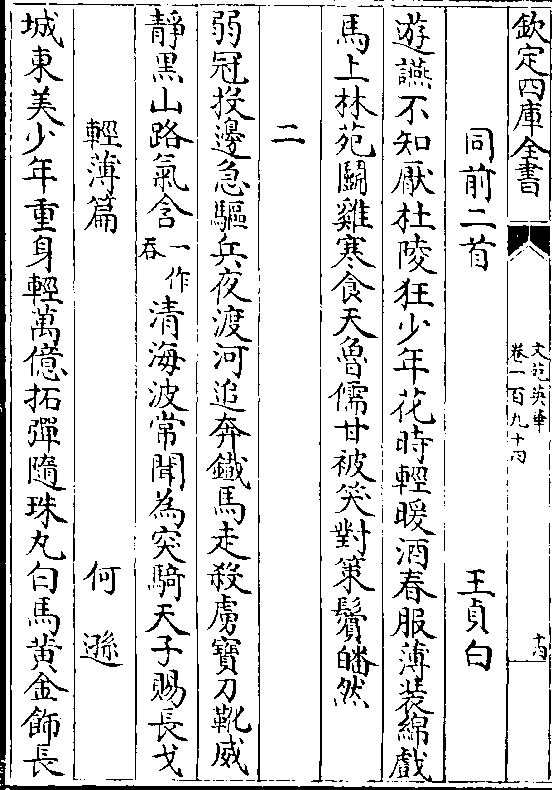 欽定四庫全書
文苑英華
卷一百九十四
十四
同前二首 王貞白
遊讌不知厭杜陵狂少年花時輕暖酒春服薄装綿戲
馬上林苑鬬雞寒食天魯儒甘被笑對策鬢皤然
二
弱冠投邊急驅兵夜渡河追奔鐵馬走殺虜寶刀靴威
靜黑山路氣含一作吞清海波常聞為突騎天子賜長戈
輕薄篇 何遜
城東美少年重身輕萬億拓彈隨珠丸白馬黄金飾長